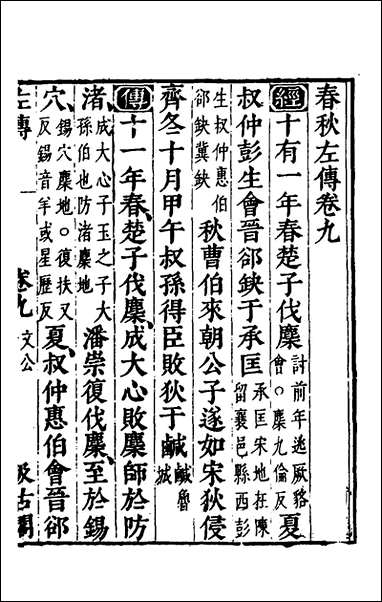 春秋左傳卷九
經十有一年春楚子伐麇討前年逃厥貉會○麇九倫反夏
叔仲彭生會晉郤缺于承匡承匡宋地在陳留襄邑縣西彭
生叔仲惠伯郤缺冀缺秋曹伯來朝公子遂如宋狄侵
齊冬十月甲午叔孫得臣敗狄于鹹鹹魯地
傳十一年春楚子伐麇成大心敗麇師於防
渚成大心子玉之子大孫伯也防渚麇地潘崇復伐麇至於錫
穴錫穴麇地○復扶又反錫音羊或星歷反夏叔仲惠伯會晉郤
左傳 卷九 文公 汲古閣